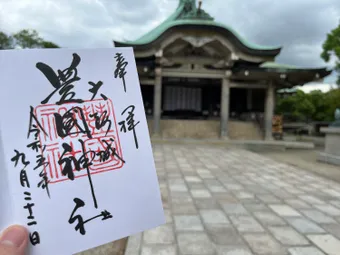 奉拝
大阪城
豊國神社
令和五年
九月二十二日